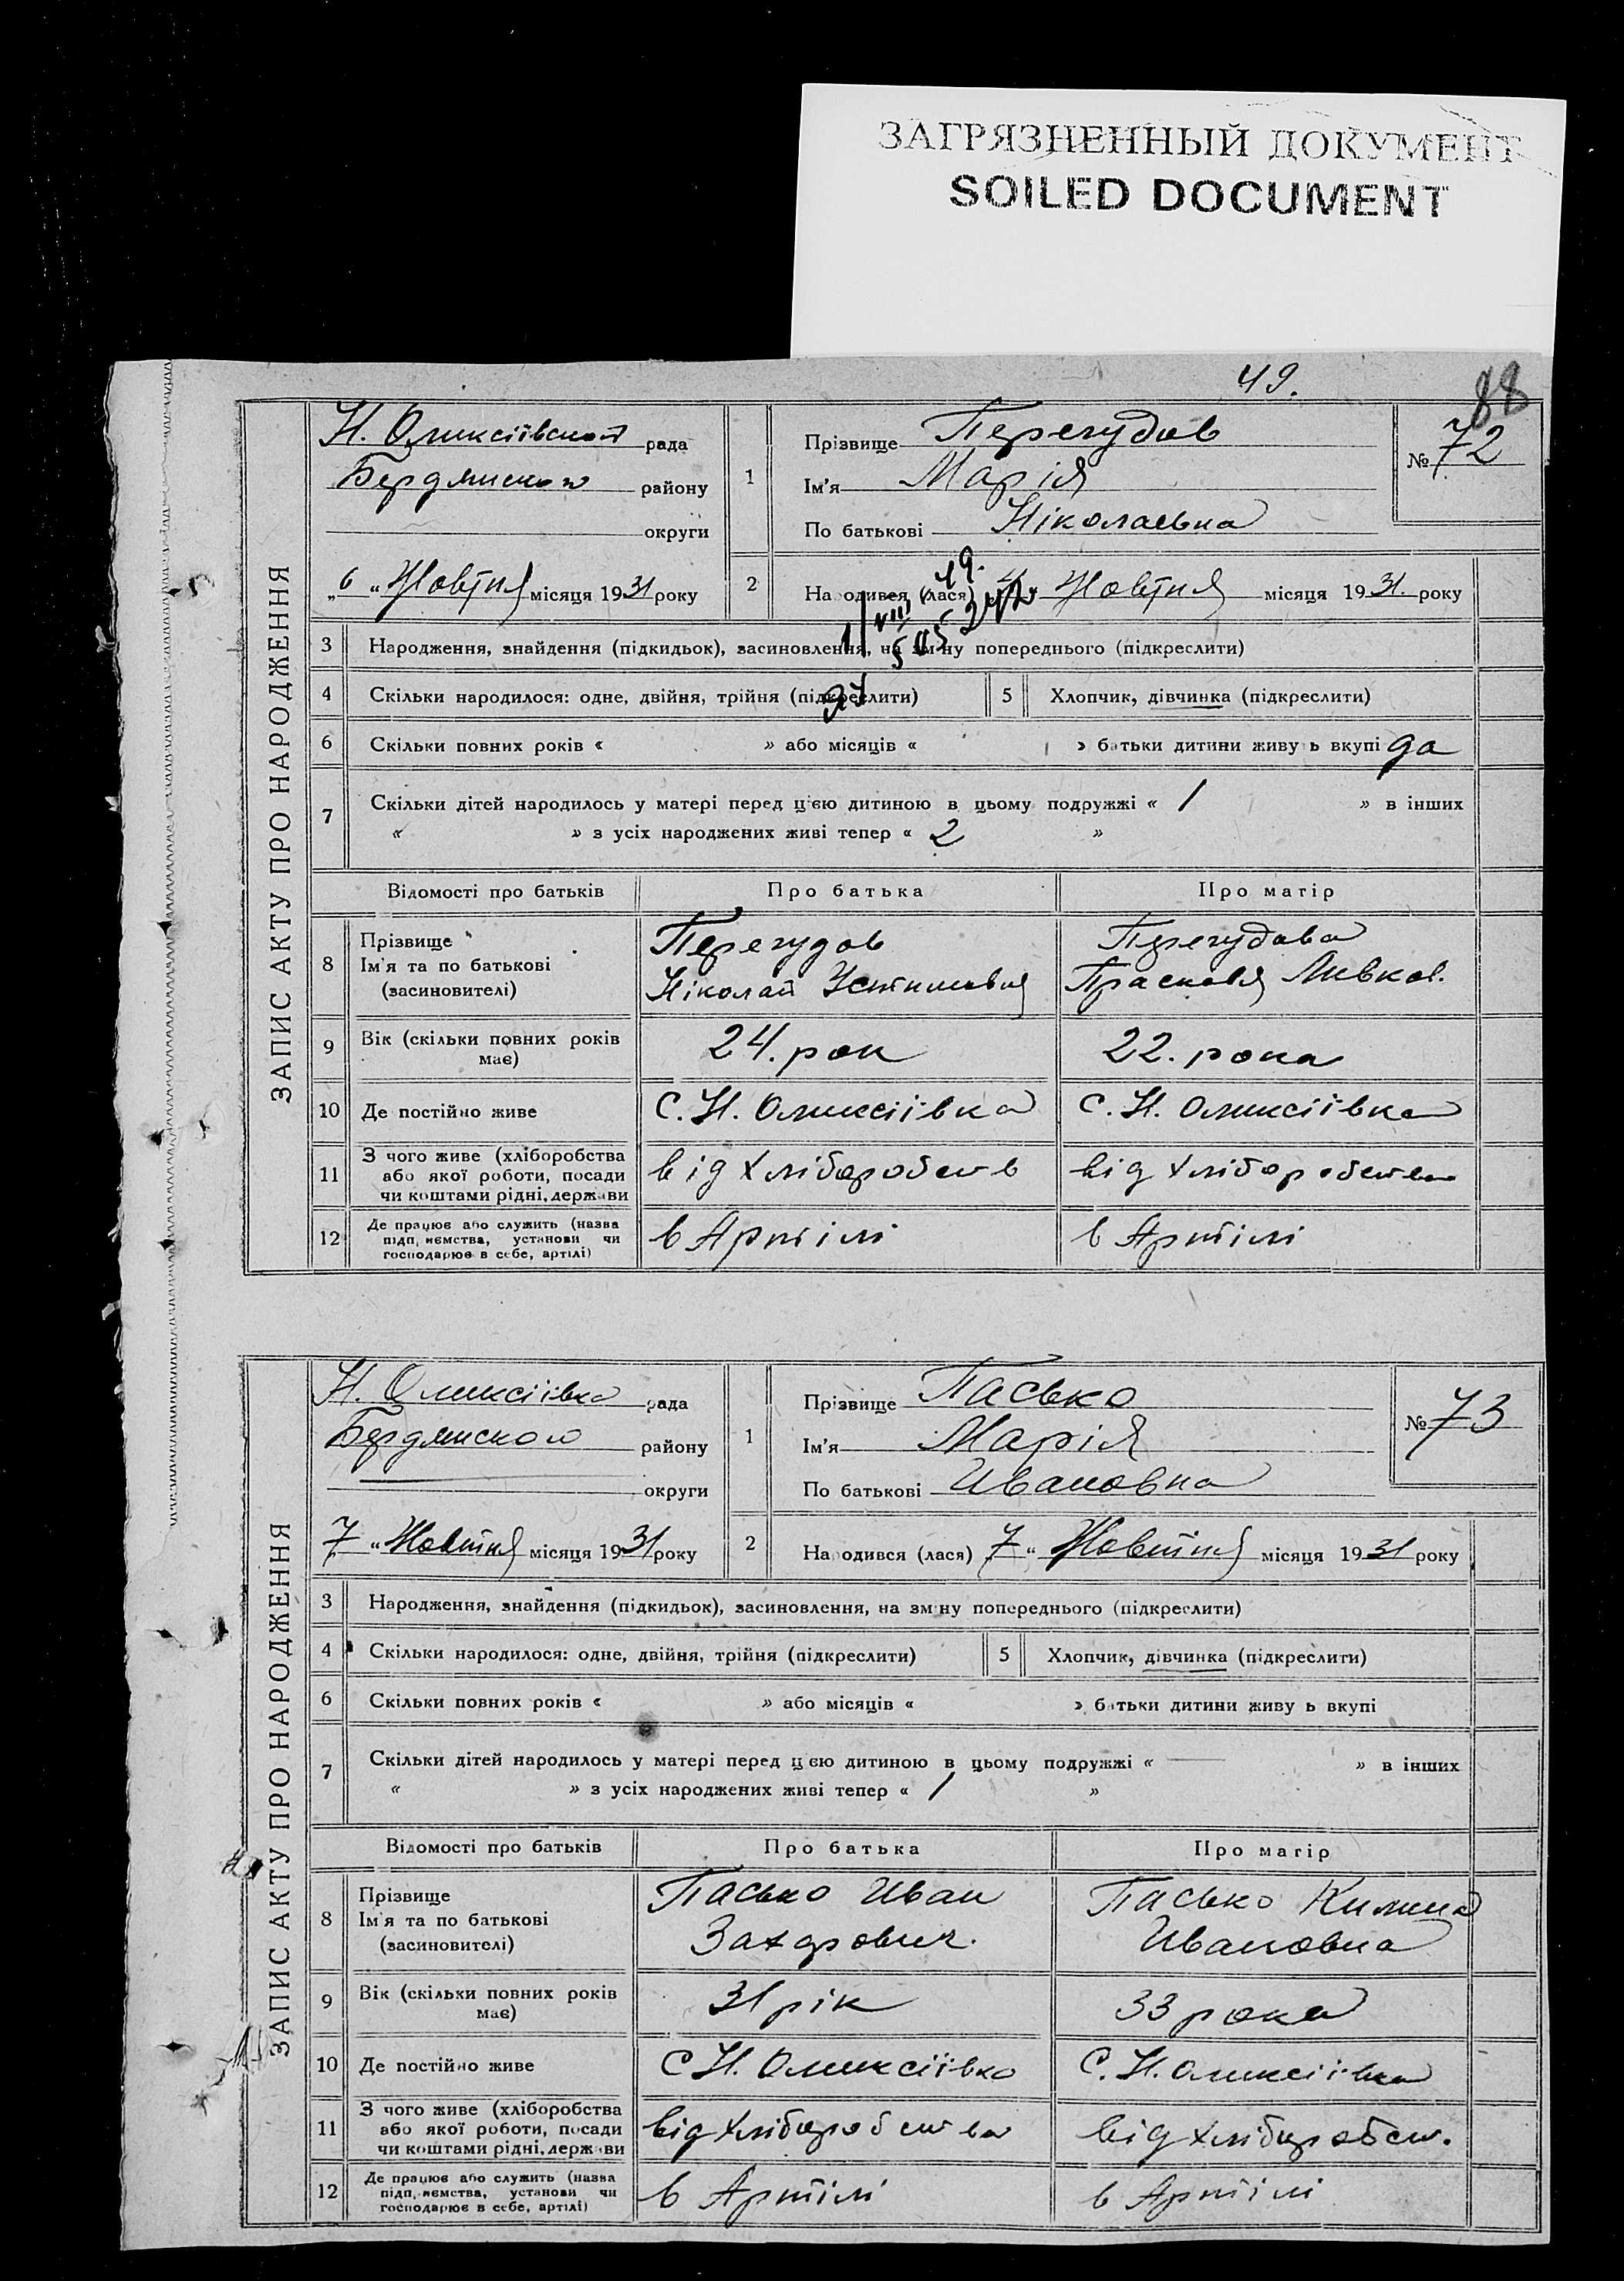 ЗАГРЯЗНЕННЫЙ ДОКУМЕНТ
SOILED DOCUMENT
49.
88
ЗАПИС АКТУ ПРО НАРОДЖЕННЯ
Н. Оликсіівской рада
Бердянского району
округи
„6 „ Жовтня місяця 1931 року
1
Прізвище Перегудов
Ім'я Марія
По батькові Ніколаевна
№ 72
2 Народився (лася) Жовтня місяця 1931. року
3 Народження, знайдення (підкидьок), засиновлення, на зміну попереднього (підкреслити)
4 Скільки народилося: одне, двійня, трійня (підкреслити) 5 Хлопчик, дівчинка (підкреслити)
6 Скільки повних років « » або місяців « » батьки дитини живуть вкупі да
7 Скільки дітей народилось у матері перед цією дитиною в цьому подружжі « 1 » в інших
« » з усіх народжених живі тепер « 2 »
Відомості про батьків Про батька Про матір
8 Прізвище
Ім'я та по батькові
(засиновителі)
Перегудов
Ніколай
Перегудова
Прасковя
9 Вік (скільки повних років
має)
24. рок
22. рока
10 Де постійно живе С. Н. Оликсіівка С. Н. Оликсіівка
11 З чого живе (хліборобства
або якої роботи, посади
чи коштами рідні, держави
від хліборобств
від хліборобства
12 Де працює або служить (назва
підприємства, установи чи
господарює в себе, артілі)
в Артілі
в Артілі
ЗАПИС АКТУ ПРО НАРОДЖЕННЯ
Н. Оликсіівка рада
Бердянского району
округи
7 „ Жовтня місяця 1931 року
1
Прізвище Пасько
Ім'я Марія
По батькові Ивановна
№ 73
2 Народився (лася) 7 „ Жовтня місяця 1931 року
3 Народження, знайдення (підкидьок), засиновлення, на зміну попереднього (підкреслити)
4 Скільки народилося: одне, двійня, трійня (підкреслити) 5 Хлопчик, дівчинка (підкреслити)
6 Скільки повних років « » або місяців « » батьки дитини живуть вкупі
7 Скільки дітей народилось у матері перед цією дитиною в цьому подружжі « — » в інших
« » з усіх народжених живі тепер « 1 »
Відомості про батьків Про батька Про матір
8 Прізвище
Ім'я та по батькові
(засиновителі)
Пасько Иван
Захарович.
Пасько
Ивановна
9 Вік (скільки повних років
має)
31 рік
33 рока
10 Де постійно живе С Н. Оликсіївка С. Н. Оликсіівка
11 З чого живе (хліборобства
або якої роботи, посади
чи коштами рідні, держави
від хліборобства
від хліборобст.
12 Де працює або служить (назва
підприємства, установи чи
господарює в себе, артілі)
в Артілі
в Артілі